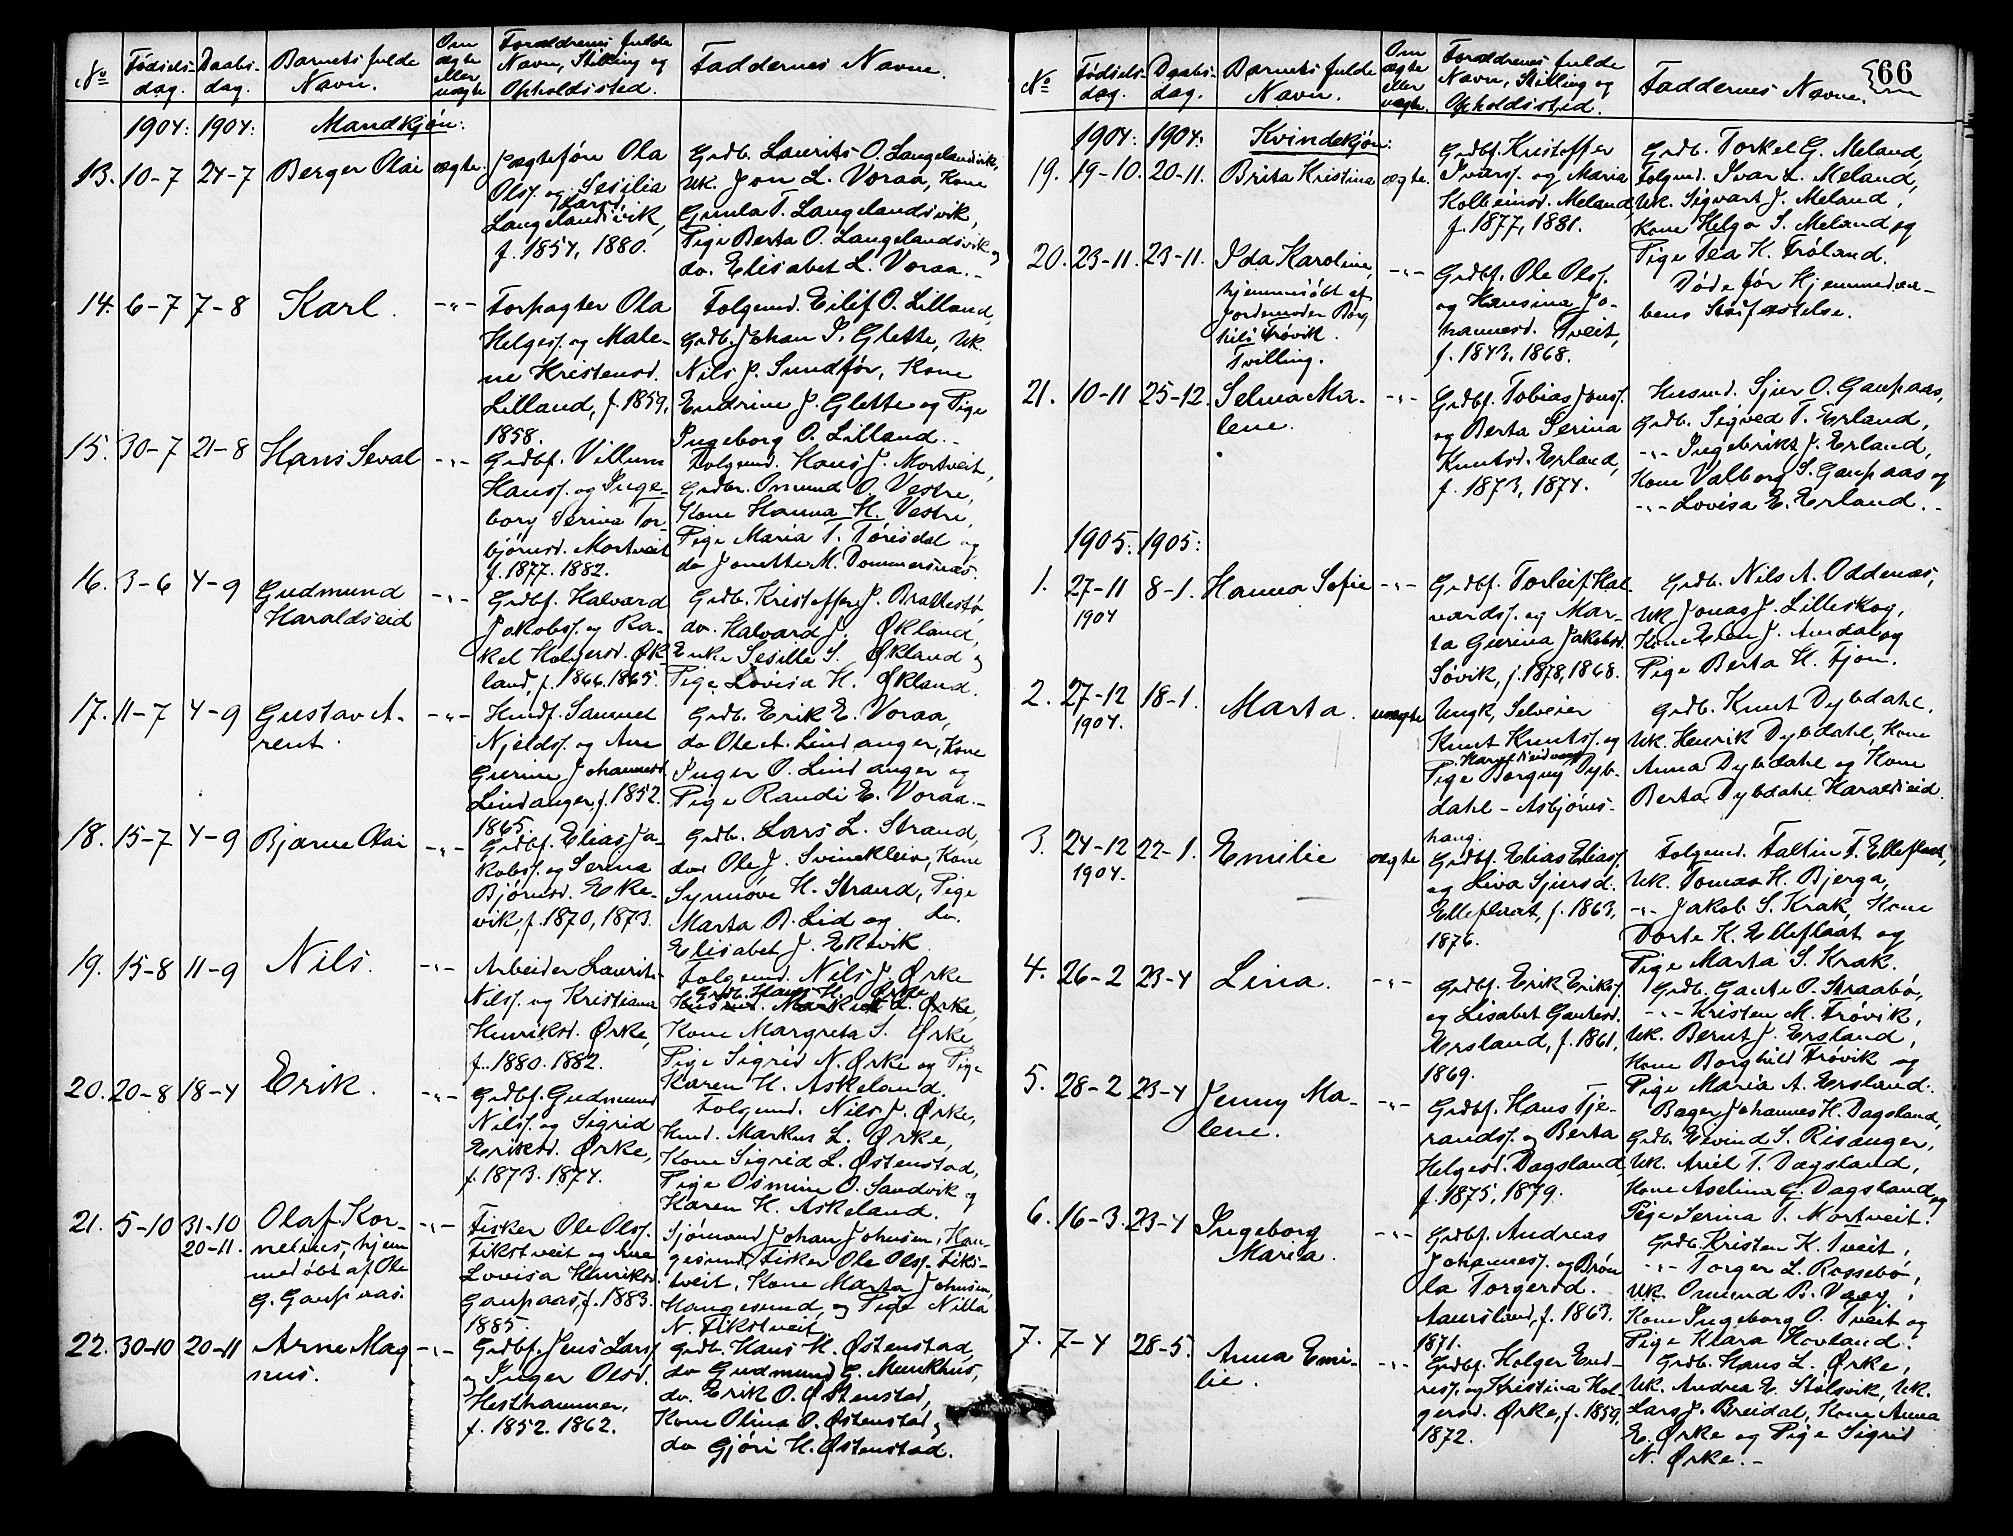 No
Fødsels-
dag.
Daabs-
dag.
Barnets fulde
Navn.
Om
ægte
eller
uægte
Foraldrenes fulde
Navn, Stilling og
Opholdssted.
Faddernes Navne.
1904: 1904: Mandkjøn:
13. 10-7 24-7 Berger Olai ægte.
Olss. og Sesilia
Larsd.
Langelandsvik,
f. 1854, 1880.
Grdb. Laurits O. Langelandsvik,
Uk. Jon L. Voraa, Kone
Gunla T. Langelandsvik,
Pige Berta O. Langelandsvik og
do. Elisabet L. Voraa.-
14. 6-7 7-8 Karl. -"-
Forpagter Ola
Helgess. og Male-
ne Kristensd.
Lilland, f. 1859,
1858.
Folgemd. Eilif O. Lilland,
Grdb. Johan I. Glette, Uk.
Nils J. Sundfør, Kone
Endrine J. Glette og Pige
Ingeborg O. Lilland.-
15. 30-7 21-8 Hans Seval -"-
Grdbf. Villum
Hanss. og Inge-
borg Serina Tor-
bjørnsd. Mortveit
f. 1877. 1882.
Folgemd. Hans J. Mortveit,
Grdbr. Omund O. Vestre,
Kone Hanna H. Vestre,
Pige Maria T. Tørisdal og
do Jonette M. Dommersnæs.
16. 3-6 4-9 Gudmund
Haraldseid -"-
Grdbf. Halvard
Jakobss. og Ra-
kel Holgersd. Øk-
land, f. 1866. 1865.
Grdb. Kristoffer J. Brattestø,
do. Halvard J. Økland,
Enke Sesille S. Økland og
Pige Lovisa H. Økland.
17. 11-7 4-9 Gustav A-
rent. -"-
Husmf. Samuel
Njeldss. og Ane
Gurine Johannesd.
Lindanger, f. 1852.
1865.
Grdb. Erik E. Voraa,
do Ole A. Lindanger, Kone
Inger O. Lindanger og
Pige Randi E. Voraa.-
18. 15-7 4-9 Bjarne Olai -"-
Grdbf. Elias Ja-
kobss. og Serina
Bjørnsd. Eke-
vik, f. 1870, 1873.
Grdb. Lars L. Strand,
do. Ole J. Svinekleiv, Kone
Synnove H. Strand, Pige
Marta B. Lid og do.
Elisabet J. Ekevik.
19. 15-8 11-9 Nils. -"-
Arbeider Laurits
Nilss. og Kristiane
Henriksd. Ørke,
f. 1880. 1882.
Folgemd. Nils J. Ørke
Grdb. Hans H. Ørke
Kone Margreta S. Ørke,
Pige Sigrid N. Ørke og Pige
Karen H. Askeland.
20. 20-8 18-4 Erik. -"-
Grdbf. Gudmund
Nilss. og Sigrid
Eriksd. Ørke,
f. 1873. 1874.
Folgemd. Nils J. Ørke,
Husmd. Markus L. Ørke,
Kone Sigrid L. Østenstad,
Pige Osmine O. Sandvik og
Karen H. Askeland.
21. 5-10 31-10
20-11. Olaf Kor-
nelius, hjem-
medøbt af Ole
G. Gaupaas. -"-
Fisker Ole Olss.
Fikstveit og Ane
Lovisa Henriksd.
Gaupaas, f. 1883.
1885.
Sjømand Johan Johnsen, Hau-
gesund, Fisker Ole Olss. Fiks-
tveit, Kone Marta Johnsen,
Haugesund og Pige Nilla
N. Fikstveit.
22. 30-10 20-11 Arne Mag-
nus. -"-
Grdbf. Jens Larss.
og Inger Olsd.
Hesthammer,
f. 1852. 1862.
Grdb. Hans H. Østenstad,
do Gudmund G. Munkhus,
do. Erik O. Østenstad,
Kone Olina O. Østenstad og
do Gjøri H. Østenstad.
66
No
Fødsels-
dag.
Daabs-
dag.
Barnets fulde
Navn.
Om
ægte
eller
uægte.
Foraldrenes fulde
Navn, Stilling og
Opholdssted.
Faddernes Navne.
1904: 1904: Kvindekjøn:
19. 19-10. 20-11. Brita Kristina ægte.
Grdbf. Kristoffer
Ivarss. og Maria
Kolbeinsd. Meland,
f. 1877, 1881.
Grdb. Torkel G. Meland,
Folgmd. Ivar L. Meland,
Uk. Sigvart J. Meland,
Kone Helga S. Meland og
Pige Tea K. Frøland.
20. 23-11. 23-11. Ida Karoline,
hjemmedøbt af
Jordemoder Borg-
hild Frøvik.
Tvilling. -"-
Grdbf. Ole Olss.
og Hansina Jo-
hannesd. Tveit,
f. 1843. 1868.
Døde før Hjemmedaa-
bens Stadfæstelse.
21. 10-11 25-12. Selma Ma-
lene. -"-
Grdbf. Tobias Jonss.
og Berta Serina
Knutsd. Erland,
f. 1873, 1874.
Husmd. Sjur O. Gaupaas,
Grdb. Sigved T. Erland,
-"- Ingebrikt J. Erland,
Kone Valborg S. Gaupaas og
-"- Lovisa E. Erland.-
1905: 1905:
1. 27-11
1904 8-1. Hanna Sofie -"-
Grdbf. Torleif Hal-
vardss. og Mar-
ta Gurina Jakobsd.
Søvik, f. 1878, 1868.
Grdb. Nils A. Oddenæs,
Uk Jonas J. Lilleskog,
Kone Elen J. Amdal og
Pige Berta H. Fjon.
2. 27-12
1904. 18-1. Marta. uægte
Ungk, Selveier
Knut Knutss. og
Haraldseidvaag
Pige Borgny Dyb-
dahl - Asbjørns-
haug.
Grdb. Knut Dybdahl,
Uk. Henrik Dybdahl, Kone
Anna Dybdahl og Kone
Berta Dybdahl Haraldseid.
3. 24-12
1904. 22-1. Emilie ægte
Grdbf. Elias Eliass.
og Liva Sjursd.
Elleflaat, f. 1863,
1876.
Folgemd. Faltin F. Elleflaat,
Uk. Tomas H. Bjerga,
-"- Jakob S. Krak, Kone
Dorte K. Elleflaat og
Pige Marta S. Krak.
4. 26-2 23-4 Lina. -"-
Grdbf. Erik Erikss.
og Lisabet Gautesd.
Ersland, f. 1861,
1869.
Grdb. Gaute O. Straabø,
-"- Kristen M. Frøvik,
Uk. Bernt J. Ersland,
Kone Borghild Frøvik og
Pige Maria A. Ersland.
5. 28-2 23-4 Jenny Ma-
lene. -"-
Grdbf. Hans Tje-
randss. og Berta
Helgesd. Dagsland
f. 1875, 1879.
Bager Johannes H. Dagsland,
Grdb. Eivind S. Risanger,
Uk. Ariel T. Dagsland,
Kone Aselina G. Dagsland og
Pige Serina T. Mortveit.
6. 16-3. 23-4 Ingeborg
Maria. -"-
Grdbf. Andreas
Johanness. og Brøn-
la Torgersd.
Aarsland, f. 1863.
1871.
Grdb. Kristen K. Tveit,
-"- Torger L. Rossebø,
Uk. Omund R. Vaag,
Kone Ingeborg O. Tveit og
Pige Klara Hovland.
7. 7-4 28-5. Anna Emi-
lie. -"-
Grdbf. Holger End-
ress. og Kristina Hol-
gersd. Ørke, f. 1859.
1872.
Grdb. Hans L. Ørke,
Uk. Andrea E. Stølsvik, Uk.
Lars J. Breidal, Kone Anna
E. Ørke og Pige Sigrid
N. Ørke.-